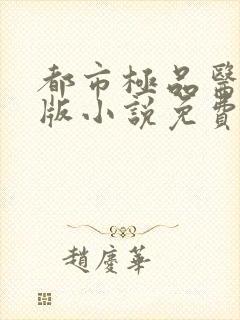 都市極品醫
版小說免費
趙慶華